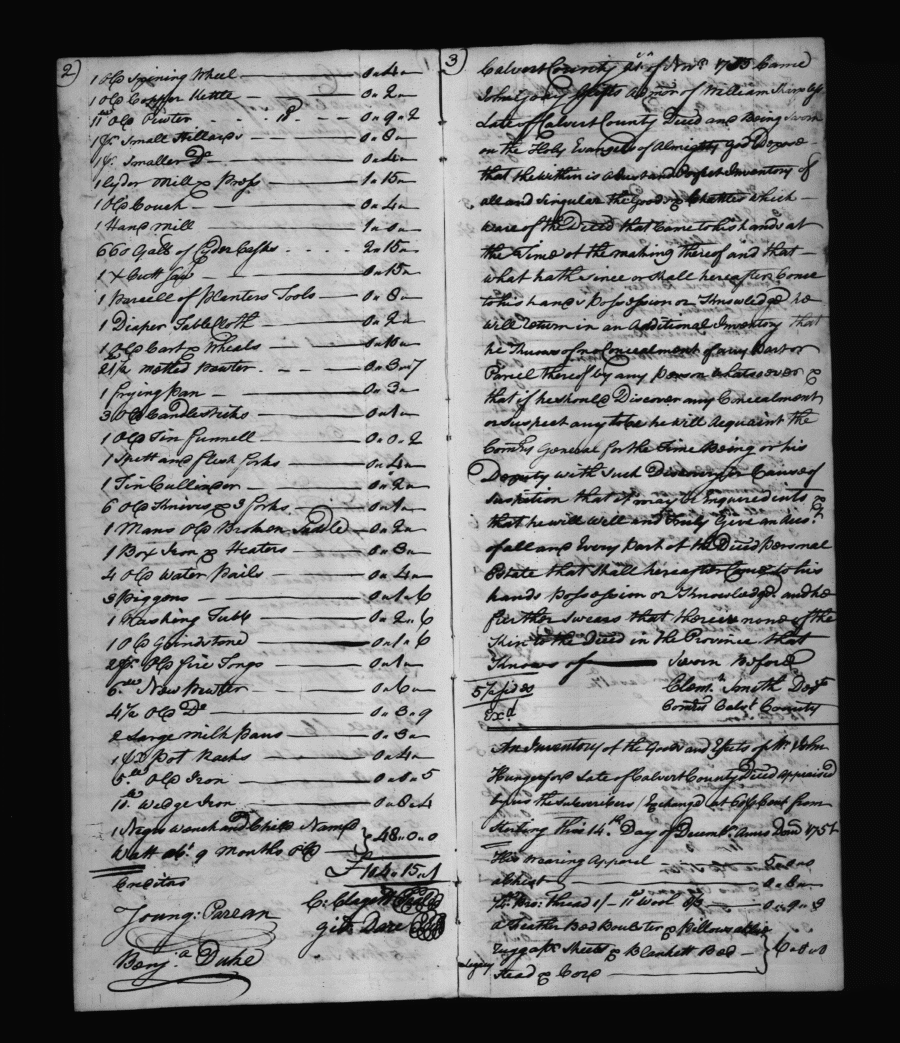 2)
1 Old Spining Wheel 0 " 4 "
1 Old Copper Kettle 0 " 2 "
11 lb Old Pewter 0 " 9 " 2
1 pr. Small Stillards 0 " 8 "
1 pr. Smaller Do 0 " 4 "
1 Cyder Mill & Press 1 " 15 "
1 Old Couch 0 " 4 "
1 Hand Mill
660 Galls of Cyder Casks 2 " 15 "
1 X Cutt Saw 0 " 15 "
1 Parcell of Planters Tools 0 " 8 "
1 Diaper Table Cloth 0 " 2 "
1 Old Cart & Wheals 0 " 10 "
21/2 melted Pewter 0 " 3 " 7
1 frying Pan 0 " 3 "
3 Old Candlesticks 0 " 1 "
1 Old Tin funnell 0 " 0 " 2
1 Spitt and flesh forks 0 " 4 "
1 Tin Cullinder 0 " 2 "
6 Old Knives & 3 forks 0 " 1 "
1 Mans Old Broken Saddle 0 " 2 "
1 Box Iron & Heaters 0 " 3 "
4 Old Water Pails 0 " 4 "
3 Piggons 0 " 1 " 6
1 Tubb 0 " 2 " 6
1 Old Grindstone 0 " 1 " 6
2 pr. Old fire Tongs 0 " 1 "
6 lb New Pewter 0 " 6 "
4 1/2 Old Do 0 " 3 " 9
2 Large Milk Pans 0 " 3 "
1 pr Pot Racks 0 " 4 "
5 lb Old Iron 0 " 0 " 5
lb Wedge Iron 0 " 3 " 4
1 Negro Wench and Child Named
Watt abt. 9 Months Old } 48 " 0 " 0
£ 104 " 15 " 1
Creditors
Young: Parran
Benja. Duke
C: Clagett
Gid: Dare
3)
Calvert County of Novr. Came
Admor of William
Late of Calvert County Deced and Being Sworn
on the Holy Evangels of Almighty God Depose
that the within is a Just and Perfect Inventory of
all and Singular the Goods & Chattels which
Ware of the Deced that Came to his hands at
the Time of the making thereof and that
what hath Since or Shall hereafter Come
to his hands Possession or Knowledge he
will return in an Additional Inventory that
he Knows of no Concealment of any Part or
Parcel thereof by any Person whatsoever &
that if he should Discover any Concealment
or Suspect any to be he will Acquaint the
Comrs General for the Time Being or his
Deputy with Such Discovery or Cause of
Suspition that it may be Enquired into &
that he will Well and Truly Give an Acct.
of all and Every Part of the Deced Personal
Estate that Shall hereafter Come to his
hands Possession or Knowledge and he
further Swears that there is none of the
Kin to the Deced in the Province that
Knows of Sworn Before
Clemt. Smith Depy
Comrs Calvt County
5 1/2 Sides
Exd
An Inventory of the Goods and Efects of Mr. John
Hungerford Late of Calvert County Deced Appraised
by us the Subscribers / Exchange at Cent from
Sterling this 14th Day of Decembr. Anno Dom
His Wearing Apparel 5 " 0 " 0
a Chest
Thread 0 " 9 " 3
a Feather Bed Boulster & Pillows
Rugg Sheets & Blankett Bed
Stead & Cord } 6 " 0 " 0
Legacy